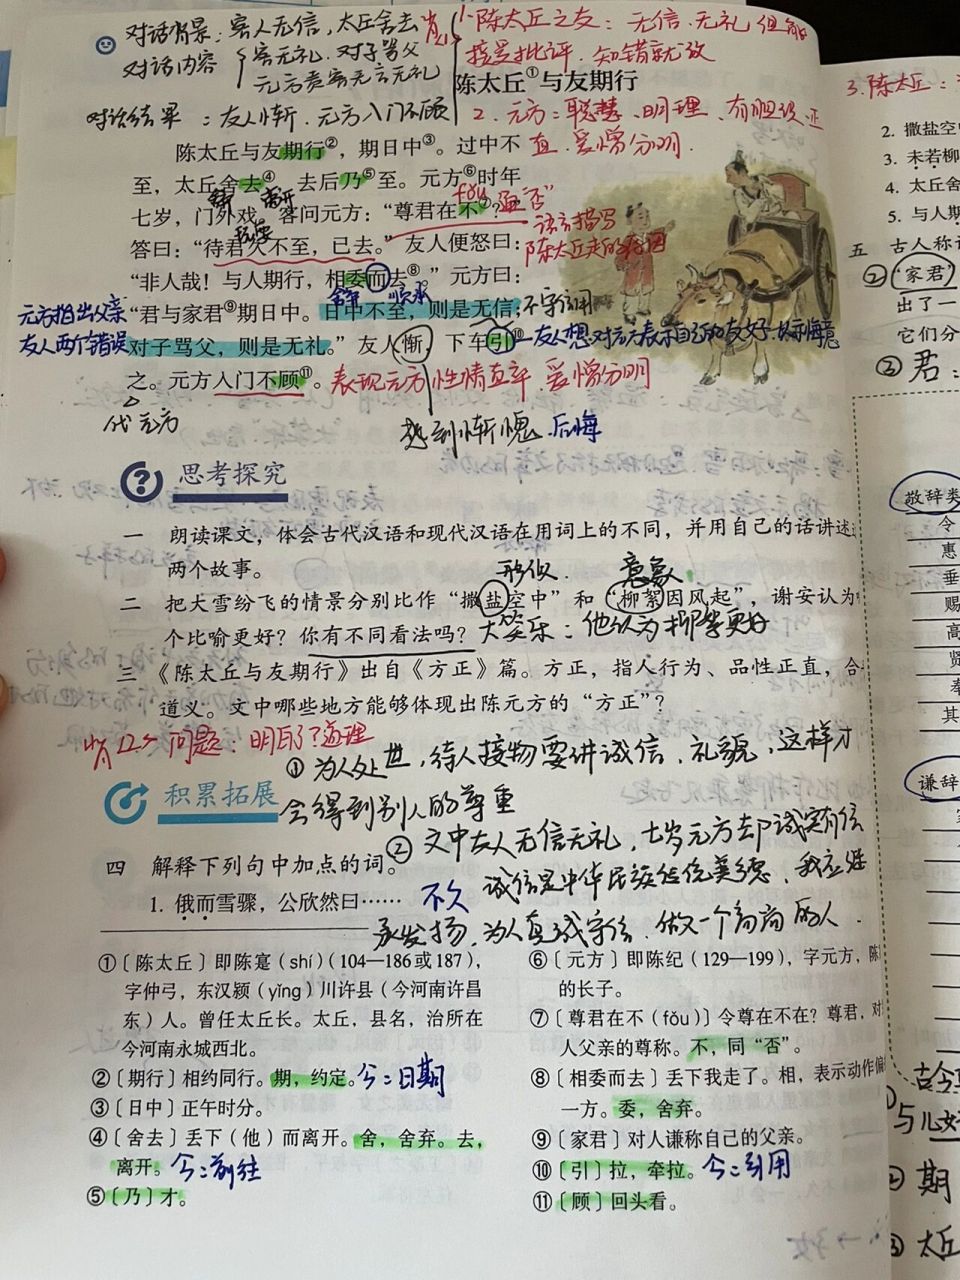 对话背景：客人无信，太丘舍去
对话内容
客无礼．对子骂父
元方责客无信无礼
对话结果：友人惭．元方入门不顾
1.陈太丘之友：无信．无礼 但能
接受批评．知错就改
陈太丘①与友期行
2.元方：聪慧．明理．有胆识．正
直．爱憎分明．
3.陈太丘：
陈太丘与友期行②，期日中③。过中不
至，太丘舍去④，去后乃⑤至。元方⑥时年
离开
七岁，门外戏。客问元方：“尊君在不⑦？”
fǒu
通“否”
语言描写
答曰：“待君久不至，已去。”友人便怒曰：
“非人哉！与人期行，相委而去⑧。”元方曰：
“君与家君⑨期日中。日中不至，则是无信；
元方指出父亲
友人两个错误
对子骂父，则是无礼。”友人惭，下车引⑩
友人想对元方表示自己的友好．
之。元方入门不顾⑪。
表现元方性情直率．爱憎分明
代元方
感到惭愧．后悔
思考探究
一 朗读课文，体会古代汉语和现代汉语在用词上的不同，并用自己的话讲述
两个故事。
形似．
意象
二 把大雪纷飞的情景分别比作“撒盐空中”和“柳絮因风起”，谢安认为
个比喻更好？你有不同看法吗？
大笑乐：他认为柳絮更好
三 《陈太丘与友期行》出自《方正》篇。方正，指人行为、品性正直，合
道义。文中哪些地方能够体现出陈元方的“方正”？
问题：明白了道理
①为人处世，待人接物要讲诚信．礼貌，这样才
会得到别人的尊重
积累拓展
②文中友人无信无礼，七岁元方却诚实有信
四 解释下列句中加点的词。
诚信是中华民族传统美德．我应继
1. 俄而雪骤，公欣然曰……
不久
承发扬，为人真诚守信．做一个高尚的人．
①〔陈太丘〕即陈寔（shí）（104—186或187），
字仲弓，东汉颍（yǐng）川许县（今河南许昌
东）人。曾任太丘长。太丘，县名，治所在
今河南永城西北。
②〔期行〕相约同行。期，约定。
今：日期
③〔日中〕正午时分。
④〔舍去〕丢下（他）而离开。舍，舍弃。去，
离开。
今：前往
⑤〔乃〕才。
⑥〔元方〕即陈纪（129—199），字元方，陈
的长子。
⑦〔尊君在不（fǒu）〕令尊在不在？尊君，对
人父亲的尊称。不，同“否”。
⑧〔相委而去〕丢下我走了。相，表示动作偏
一方。委，舍弃。
⑨〔家君〕对人谦称自己的父亲。
⑩〔引〕拉，牵拉。
今：引用
⑪〔顾〕回头看。
2. 撒盐空
3. 未若柳
4. 太丘舍
5. 与人期
五 古人称
②“家君”
出了一
它们分
③君：
敬辞类
令
惠
垂
赐
高
贤
奉
其
谦辞
古今
与儿女
②期
③太丘